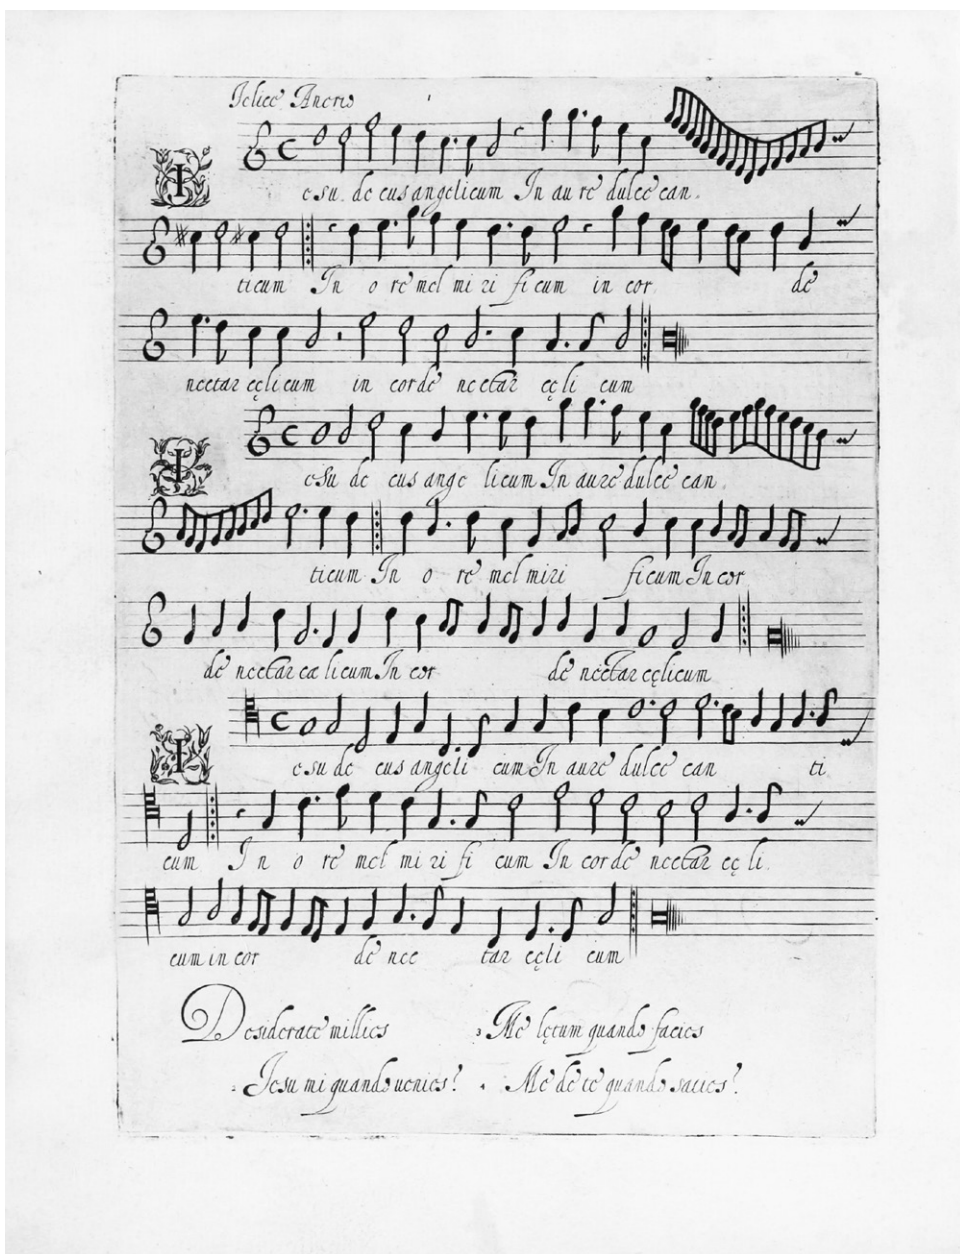 Felice Anerio
I esu. de cus angelicum In au re dulce can.
ticum In o re mel mi ri fi cum in cor. de
nectar cęlicum in corde nectar cęli cum
I esu de cus ange licum In aure dulce can.
ticum In o re mel miri ficum In cor
de nectar cæ licum In cor de nectar cęlicum
I esu de cus angeli cum In aure dulce can ti
cum In o re mel mi ri fi cum In corde nectar cę li.
cum in cor de nec tar cęli cum
Desiderate millies 3 Me lętum quando facies
2 Iesu mi quando uenies? 4 Me de te quando saties?